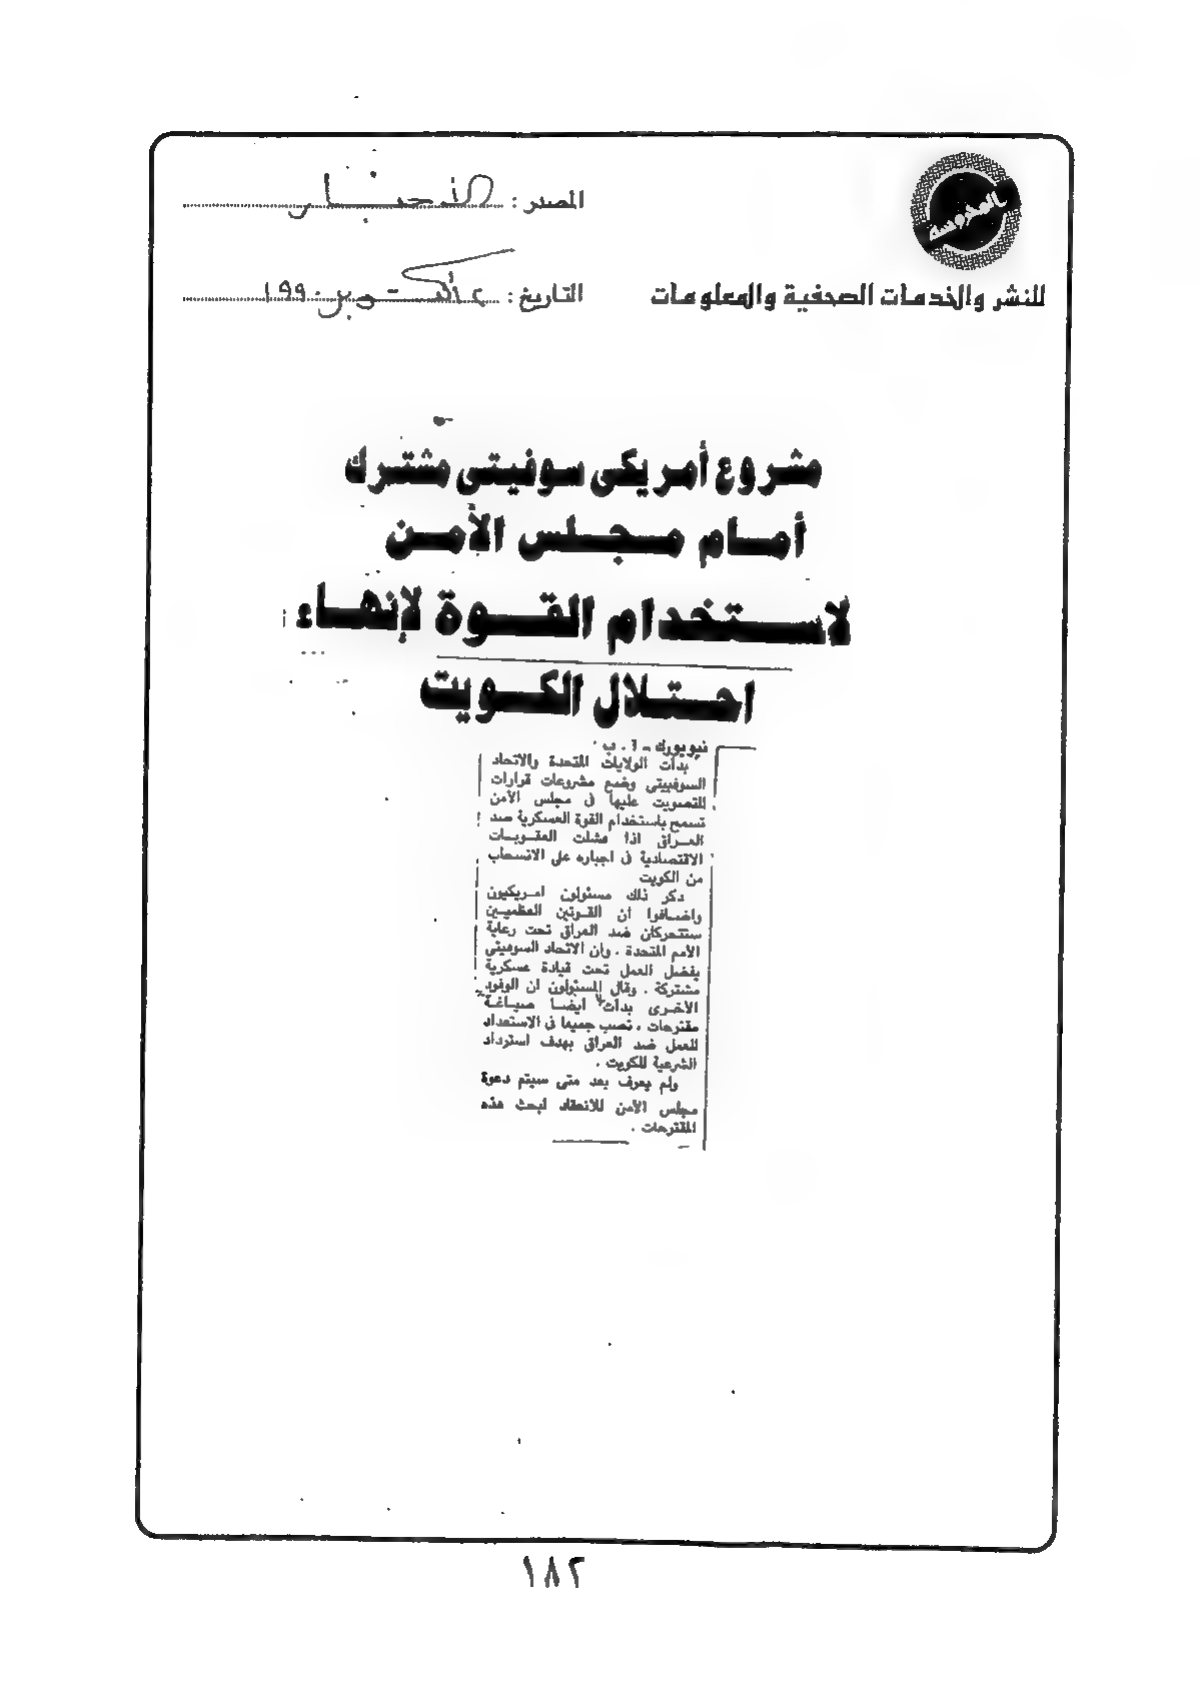 المحروسة
المصدر : الأخبار
للنشر والخدمات الصحفية والمعلومات
التاريخ : ٢ أكتوبر ١٩٩٠
مشروع أمريكى سوفيتى مشترك
أمام مجلس الأمن
لاستخدام القوة لإنهاء
احتلال الكويت
نيويورك - أ . ب
بدأت الولايات المتحدة والاتحاد
السوفييتى وضع مشروعات قرارات
للتصويت عليها فى مجلس الأمن
تسمح باستخدام القوة العسكرية ضد
العراق اذا فشلت العقوبات
الاقتصادية فى اجباره على الانسحاب
من الكويت
ذكر ذلك مسئولون امريكيون
واضافوا ان القوتين العظميين
ستتحركان ضد العراق تحت رعاية
الأمم المتحدة . وان الاتحاد السوفيتى
يفضل العمل تحت قيادة عسكرية
مشتركة . وقال المسئولون ان الوفود
الأخرى بدأت ايضا صياغة
مقترحات ، تصب جميعا فى الاستعداد
للعمل ضد العراق بهدف استرداد
الشرعية للكويت .
ولم يعرف بعد متى سيتم دعوة
مجلس الأمن للانعقاد لبحث هذه
المقترحات .
١٨٢